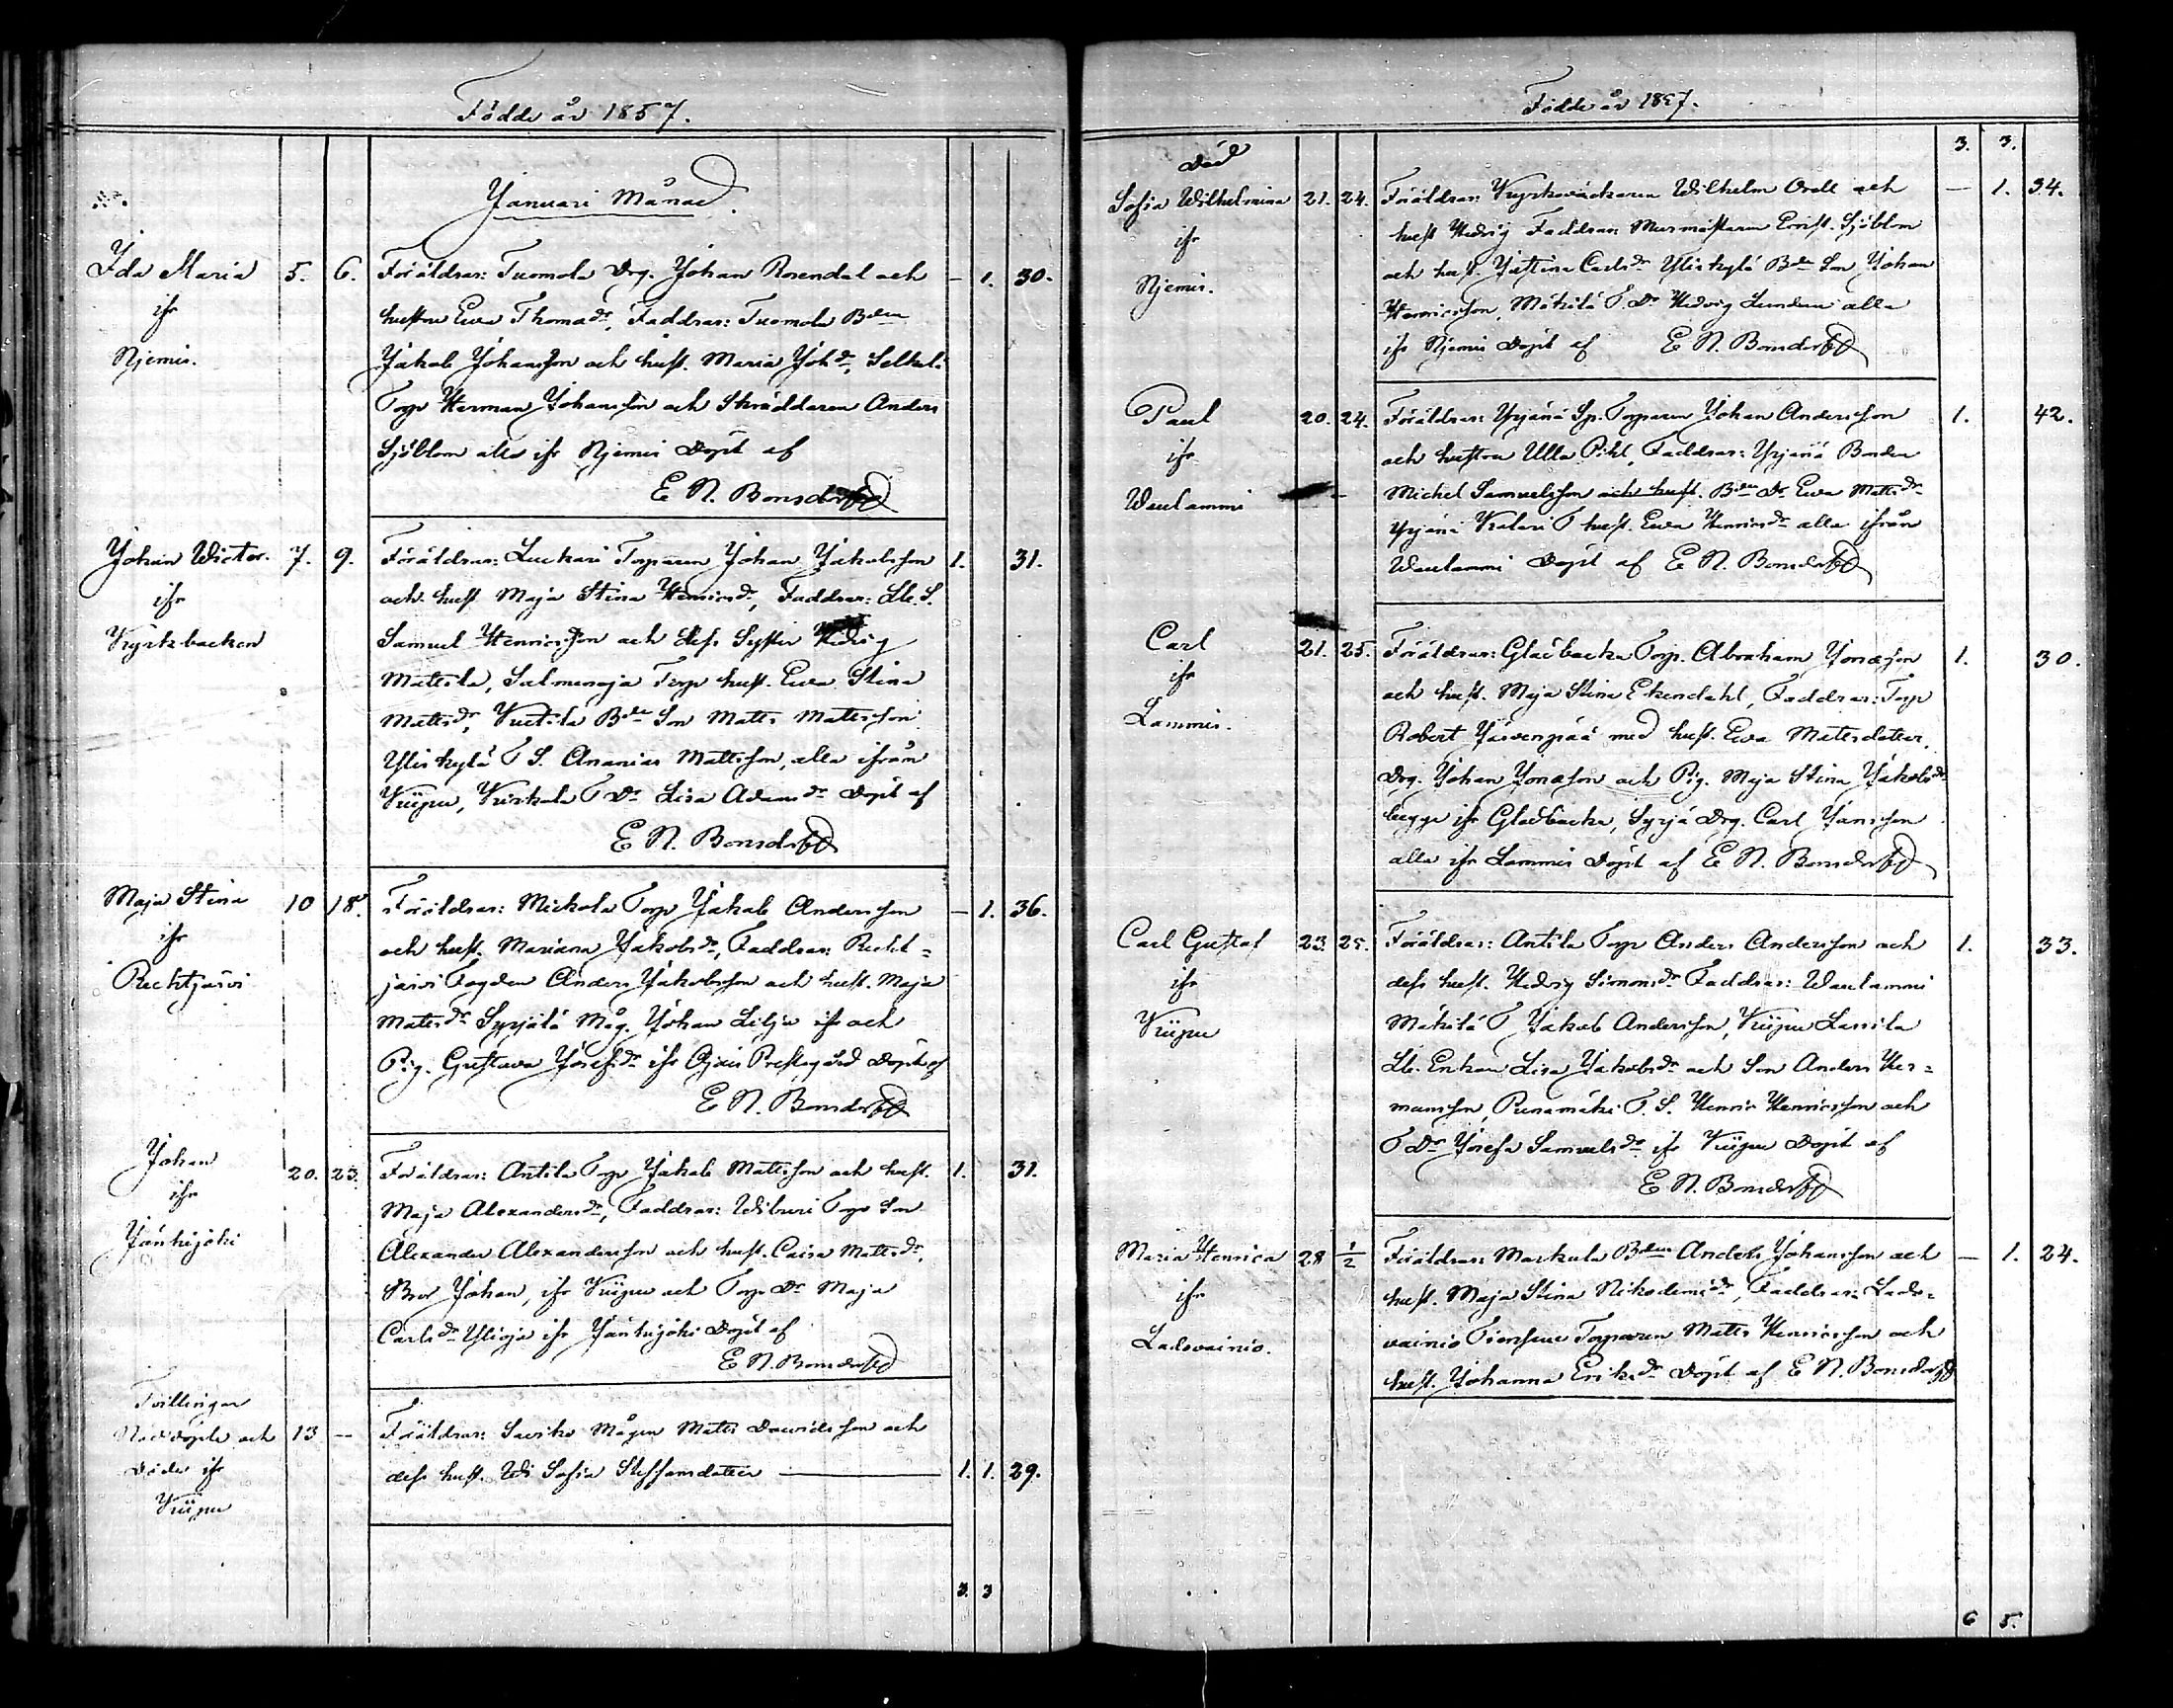 Födde år 1857.
Januari Månad.
Ida Maria 5. 6. Föräldrar: Tuomola Drg. Johan Rosendal och — 1. 30.
ifr hustru Eva Thomadr, Faddrar: Tuomola Bden
Njemis. Jakob Johansson och hust. Maria Johdr,
Torp Herman Johansson och Skräddaren Anders
Sjöblom alla ifr Njemis Döpt af
E N. Bonsdorff
Johan Victor. 7. 9. Föräldrar: Luckari Torparen Johan Jakobsson 1. 31.
ifr och hust Maja Stina Henricsdr, Faddrar: Lb. S.
Kyrkbacken Samuel Henricsson och dess Syster Hedvig
Mattila, Salmenoja Torp hust. Eva Stina
Mattsdr, Bde Son Matts Mattsson
Yliskylä T S. Ananias Mattsson, alla ifrån
Kuipu, T Dr Lisa Adamsdr Döpt af
E N. Bonsdorff
Maja Stina 10 18. Föräldrar: Mickola Torp Jakob Andersson — 1. 36.
ifr och hust. Mariana Jakobsdr, Faddrar: Recht=
Rechtjärvi järvi Fogden Anders Jakobsson och hust. Maja
Mattsdr Syrjälä Måg. Johan Lilja ifr och
Pig. Gustava Josefsdr ifr Ojais Prestegård Döpt af
E N. Bonsdorff
Johan 20. 23. Föräldrar: Antila Torp Jakob Mattsson och hust. 1. 31.
ifr Maja Alexandersdr, Faddrar: Wiburi Torp Son
Jänhijoki Alexander Alexandersson och hust. Caisa Mattsdr,
Bror Johan, ifr Kuipu och Torp Dr Maja
Carlsdr Ylioja ifr Jänhijoki Döpt af
E N. Bonsdorff
Tvillingar
Nöddöpte och 13 — Föräldrar: Saviko Mågen Matts Davidsson och
Döde ifr dess hust. Sofia Steffansdotter — 1. 1. 29.
Kuipu
3. 3
Födde år 1857.
3. 3.
Död
Sofia Wilhelmina 21. 24. Föräldrar: Kyrkoväcktaren Wilhelm Orell och — 1. 34.
ifr hust Hedvig Faddrar: Murmästaren Ernst. Sjöblom
Njemis. och hust. Justina Carlsdr Yliskylä Bde Son Johan
Henricsson, Mäkilä T. Dr Hedvig Lundun alla
ifr Njemis Döpt af E N. Bonsdorff
Paul 20. 24. Föräldrar: Yrjänä Sp. Torparen Johan Andersson 1. 42.
ifr och hustru Ulla Pihl, Faddrar: Yrjänä Bonden
Waulammi Michel Samuelsson och hust. Bden Dr Eva Mattsdr
Yrjänä T hust. Eva Henricsdr alla ifrån
Waulammi Döpt af E N. Bonsdorff
Carl 21. 25. Föräldrar: Gladbacka Torp. Abraham Jonasson 1. 30.
ifr och hust. Maja Stina Ekendahl, Faddrar: Torp
Lammis. Robert Järvenpää med hust. Eva Mattsdotter.
Drg. Johan Jonasson och Pig. Maja Stina Jakobsdr
begge ifr Gladbacka, Syrjä Drg. Carl Jansson
alla ifr Lammis Döpt af E N. Bonsdorff
Carl Gustaf 23. 25. Föräldrar: Antila Torp Anders Andersson och 1. 33.
ifr dess hust. Hedvig Simonsdr Faddrar: Waulammi
Kuipu Mäkilä T Jakob Andersson, Kuipu Lassila
Lb. Enkan Lisa Jakobsdr och Son Anders Her=
mansson, Punamäki T. S. Henric Henricsson och
T Dr Josefa Samuelsdr ifr Kuipu Döpt af
E N. Bonsdorff
Maria Henrica 28 1/2 Föräldrar: Markula Bden Anders Johansson och — 1. 24.
ifr hust. Maja Stina Nikodemidr, Faddrar: Lado=
Ladovainio. vainio Torparen Matts Henricsson och
hust. Johanna Eriksdr Döpt af E N. Bonsdorff
6 5.